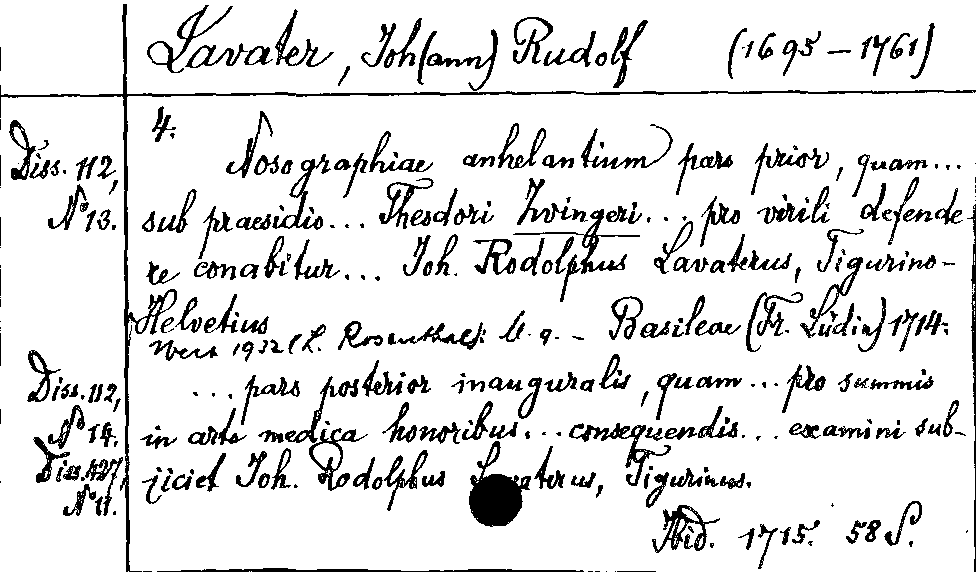 Lavater, Joh(ann) Rudolf (1695-1761)
4.
Diss. 112, Nosographiae anhelantium pars prior, quam...
No 13. sub praesidio... Theodori Zvingeri... pro virili defende-
re conabitur... Joh. Rodolphus Lavaterus, Tigurino-
Helvetius
1932 (L. Rosenthal): - Basileae (Fr. Lüdin) 1714.
Diss. 112, ... pars posterior inauguralis, quam... pro summis
No 14. in arte medica honoribus... consequendis... examini sub-
Diss. 427, jiciet Joh. Rodolphus Lavaterus, Tigurinus.
No 11.
Ibid. 1715. 58 S.